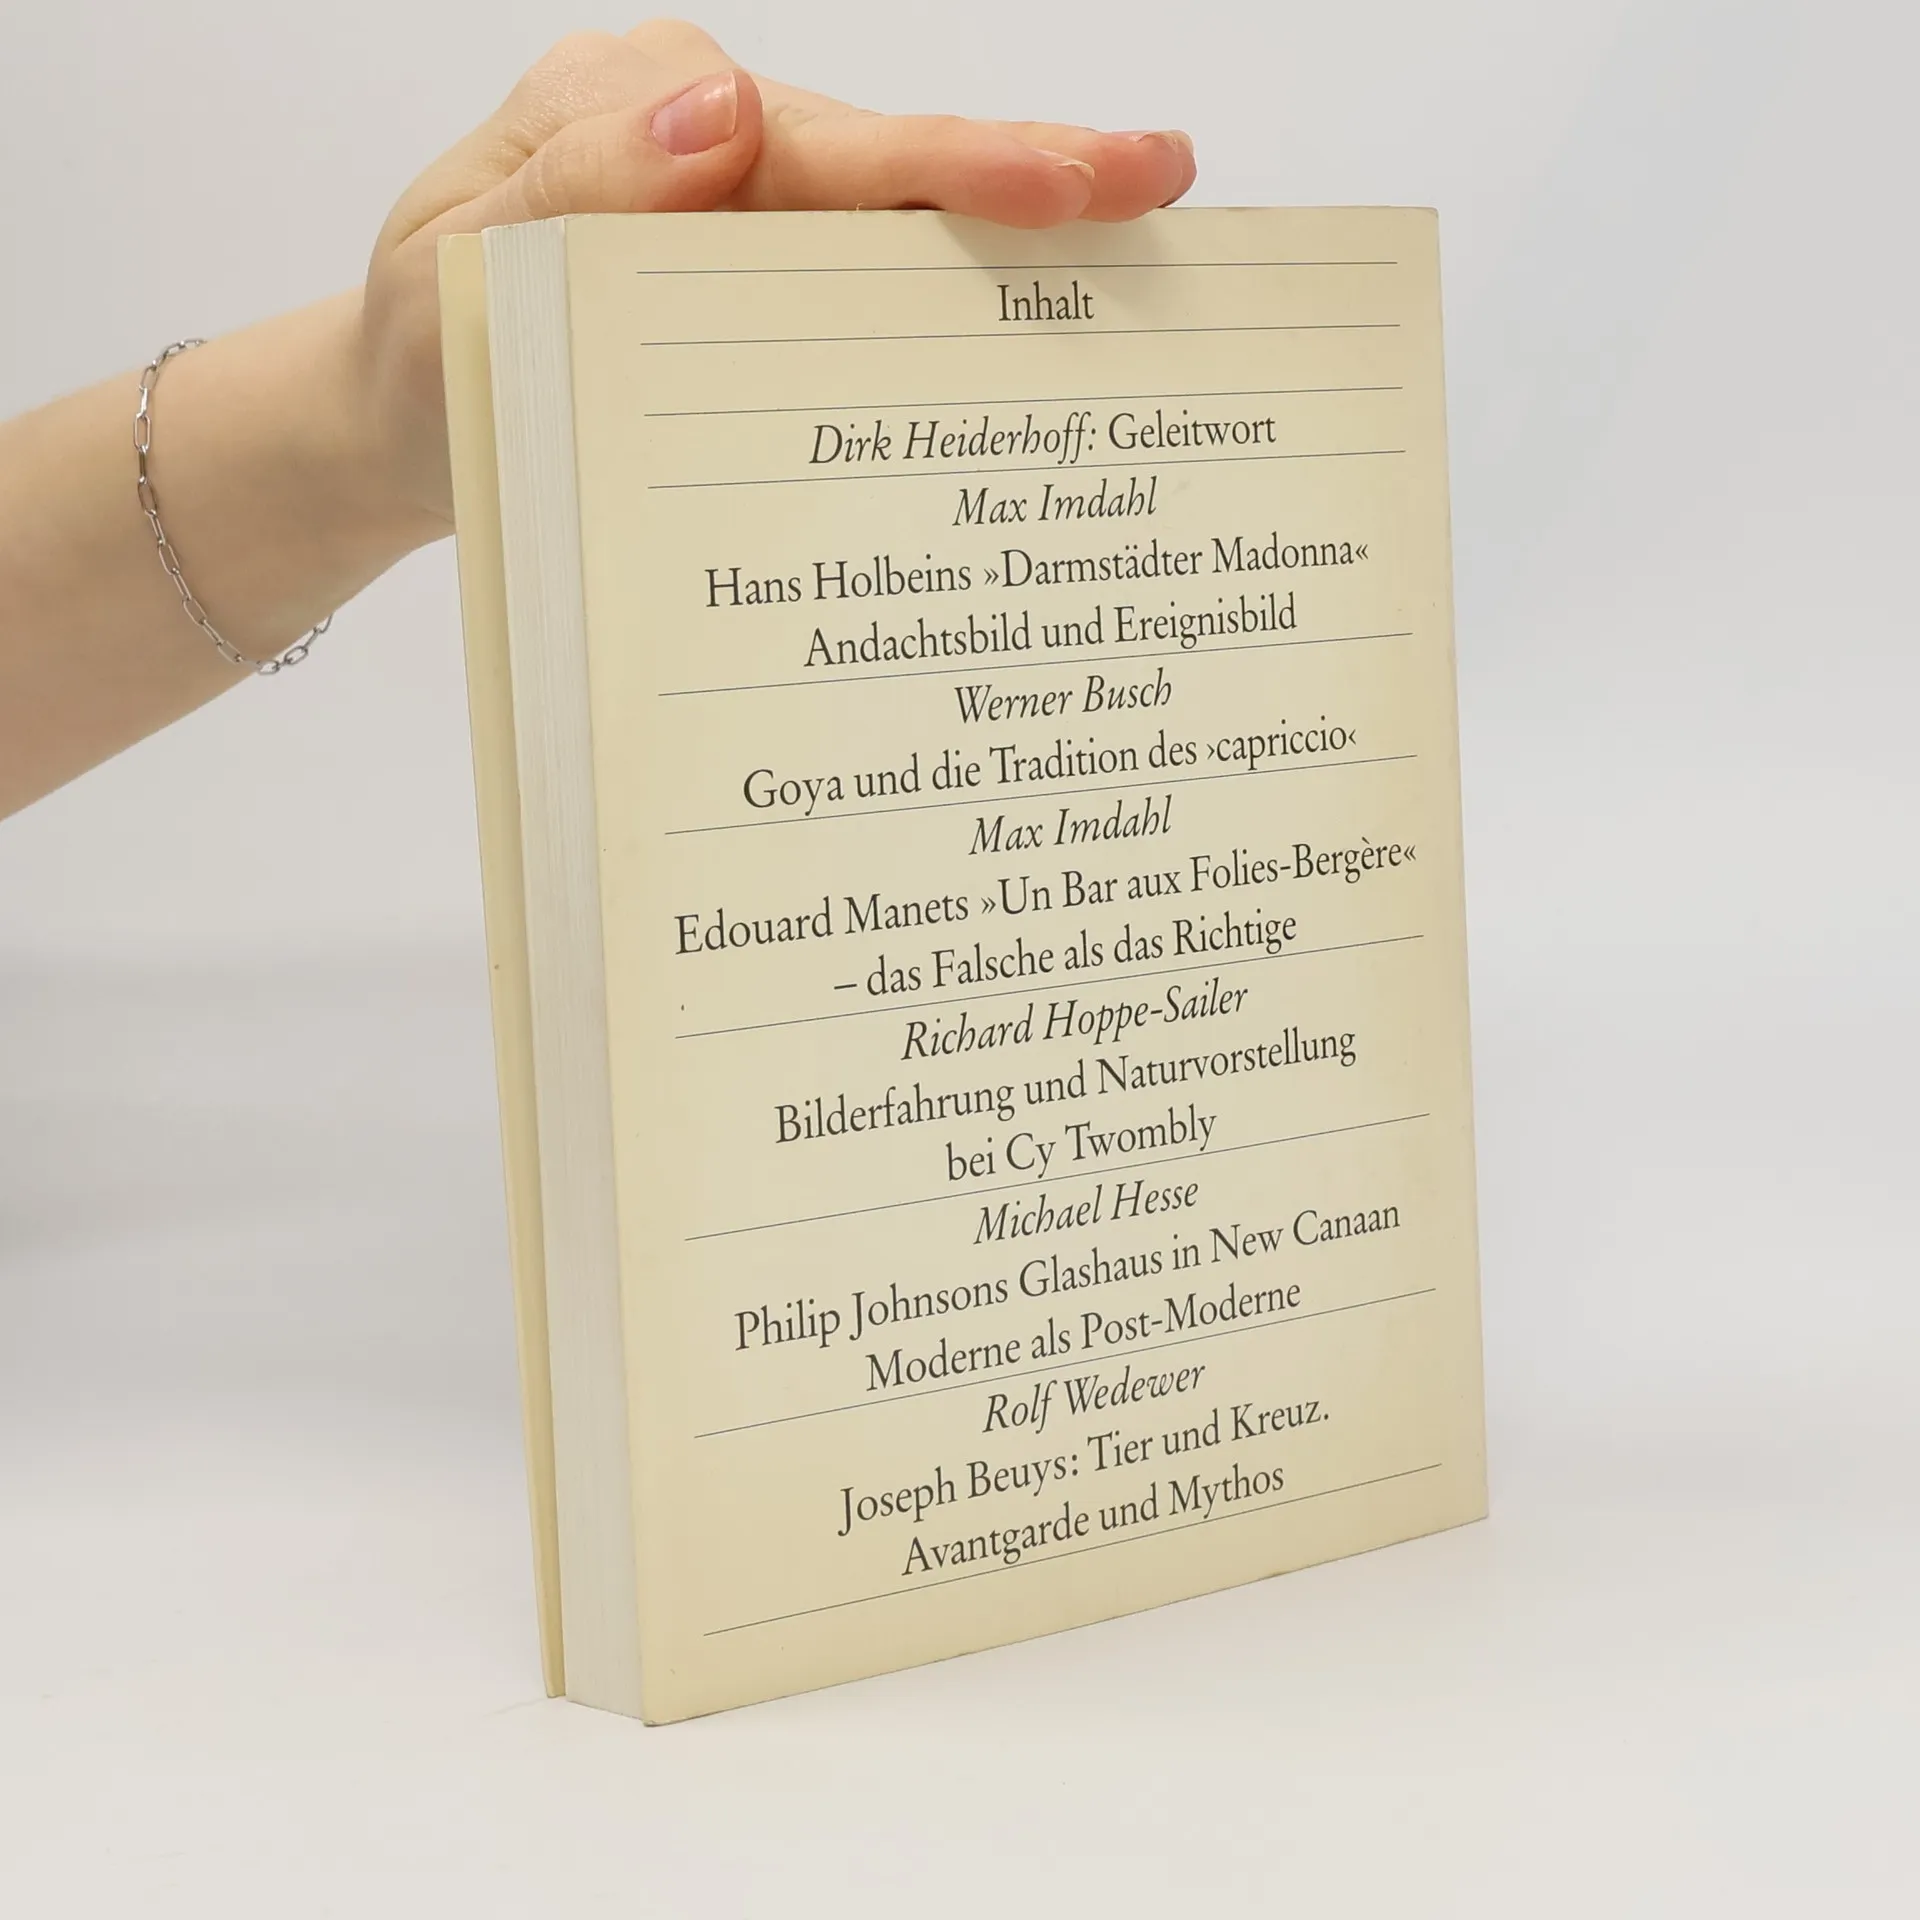 Inhalt
Dirk Heiderhoff: Geleitwort
Max Imdahl
Hans Holbeins »Darmstädter Madonna«
Andachtsbild und Ereignisbild
Werner Busch
Goya und die Tradition des ›capriccio‹
Max Imdahl
Edouard Manets »Un Bar aux Folies-Bergère«
– das Falsche als das Richtige
Richard Hoppe-Sailer
Bilderfahrung und Naturvorstellung
bei Cy Twombly
Michael Hesse
Philip Johnsons Glashaus in New Canaan
Moderne als Post-Moderne
Rolf Wedewer
Joseph Beuys: Tier und Kreuz.
Avantgarde und Mythos